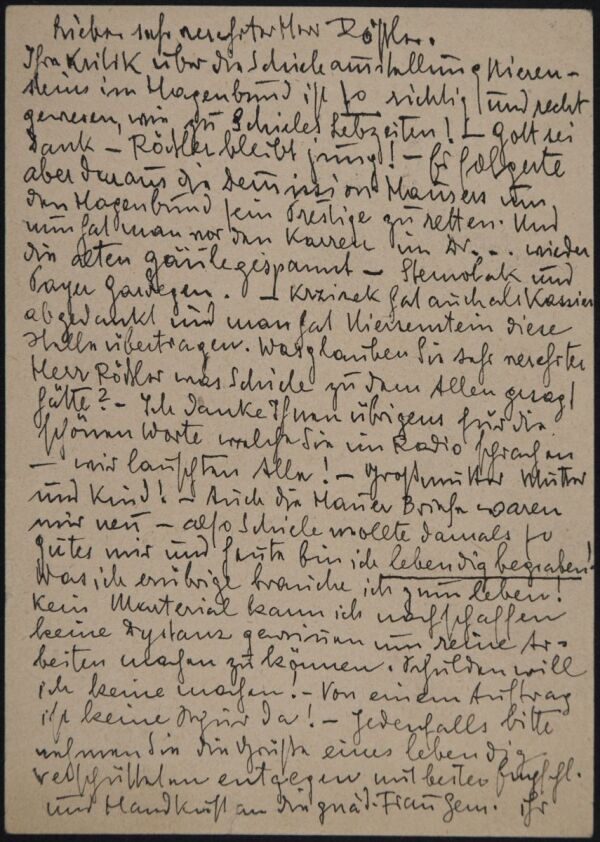 Lieber sehr verehrter Herr Rößler.
Ihre Kritik über die Schieleausstellung Nieren-
steins im Hagenbund ist so richtig und recht
gewesen, wie zu Schieles Lebzeiten! – Gott sei
Dank – Rößler bleibt jung! – Es folgerte
aber daraus die Demission Hausers um
den Hagenbund sein Prestige zu retten. Und
nun hat man vor den Karren im Dr... wieder
die alten Gäule gespannt –
und
. – Krzizek hat auch als Kassier
abgedankt und man hat Nierenstein diese
Stelle übertragen. Was glauben Sie sehr verehrter
Herr Rößler was Schiele zu dem Allen gesagt
hätte? – Ich danke Ihnen übrigens für die
schönen Worte welche Sie im Radio sprachen
– wir lauschten Alle! – Großmutter Mutter
und Kind! – Auch die Hauer Briefe waren
mir neu – also Schiele wollte damals so
gutes mir und heute bin ich lebendig begraben!
Was ich erübrige brauche ich zum leben!
Kein Material kann ich nachschaffen
keine Dystanz gewinnen um reine Ar-
beiten machen zu können. Schulden will
ich keine machen! – Von einem Auftrag
ist keine Spur da! – Jedenfalls bitte
nehmen Sie die Grüße eines lebendig
verschütteten entgegen mit besten Empfehl.
und Handkuß an die gnäd. Frau Gem. Ihr